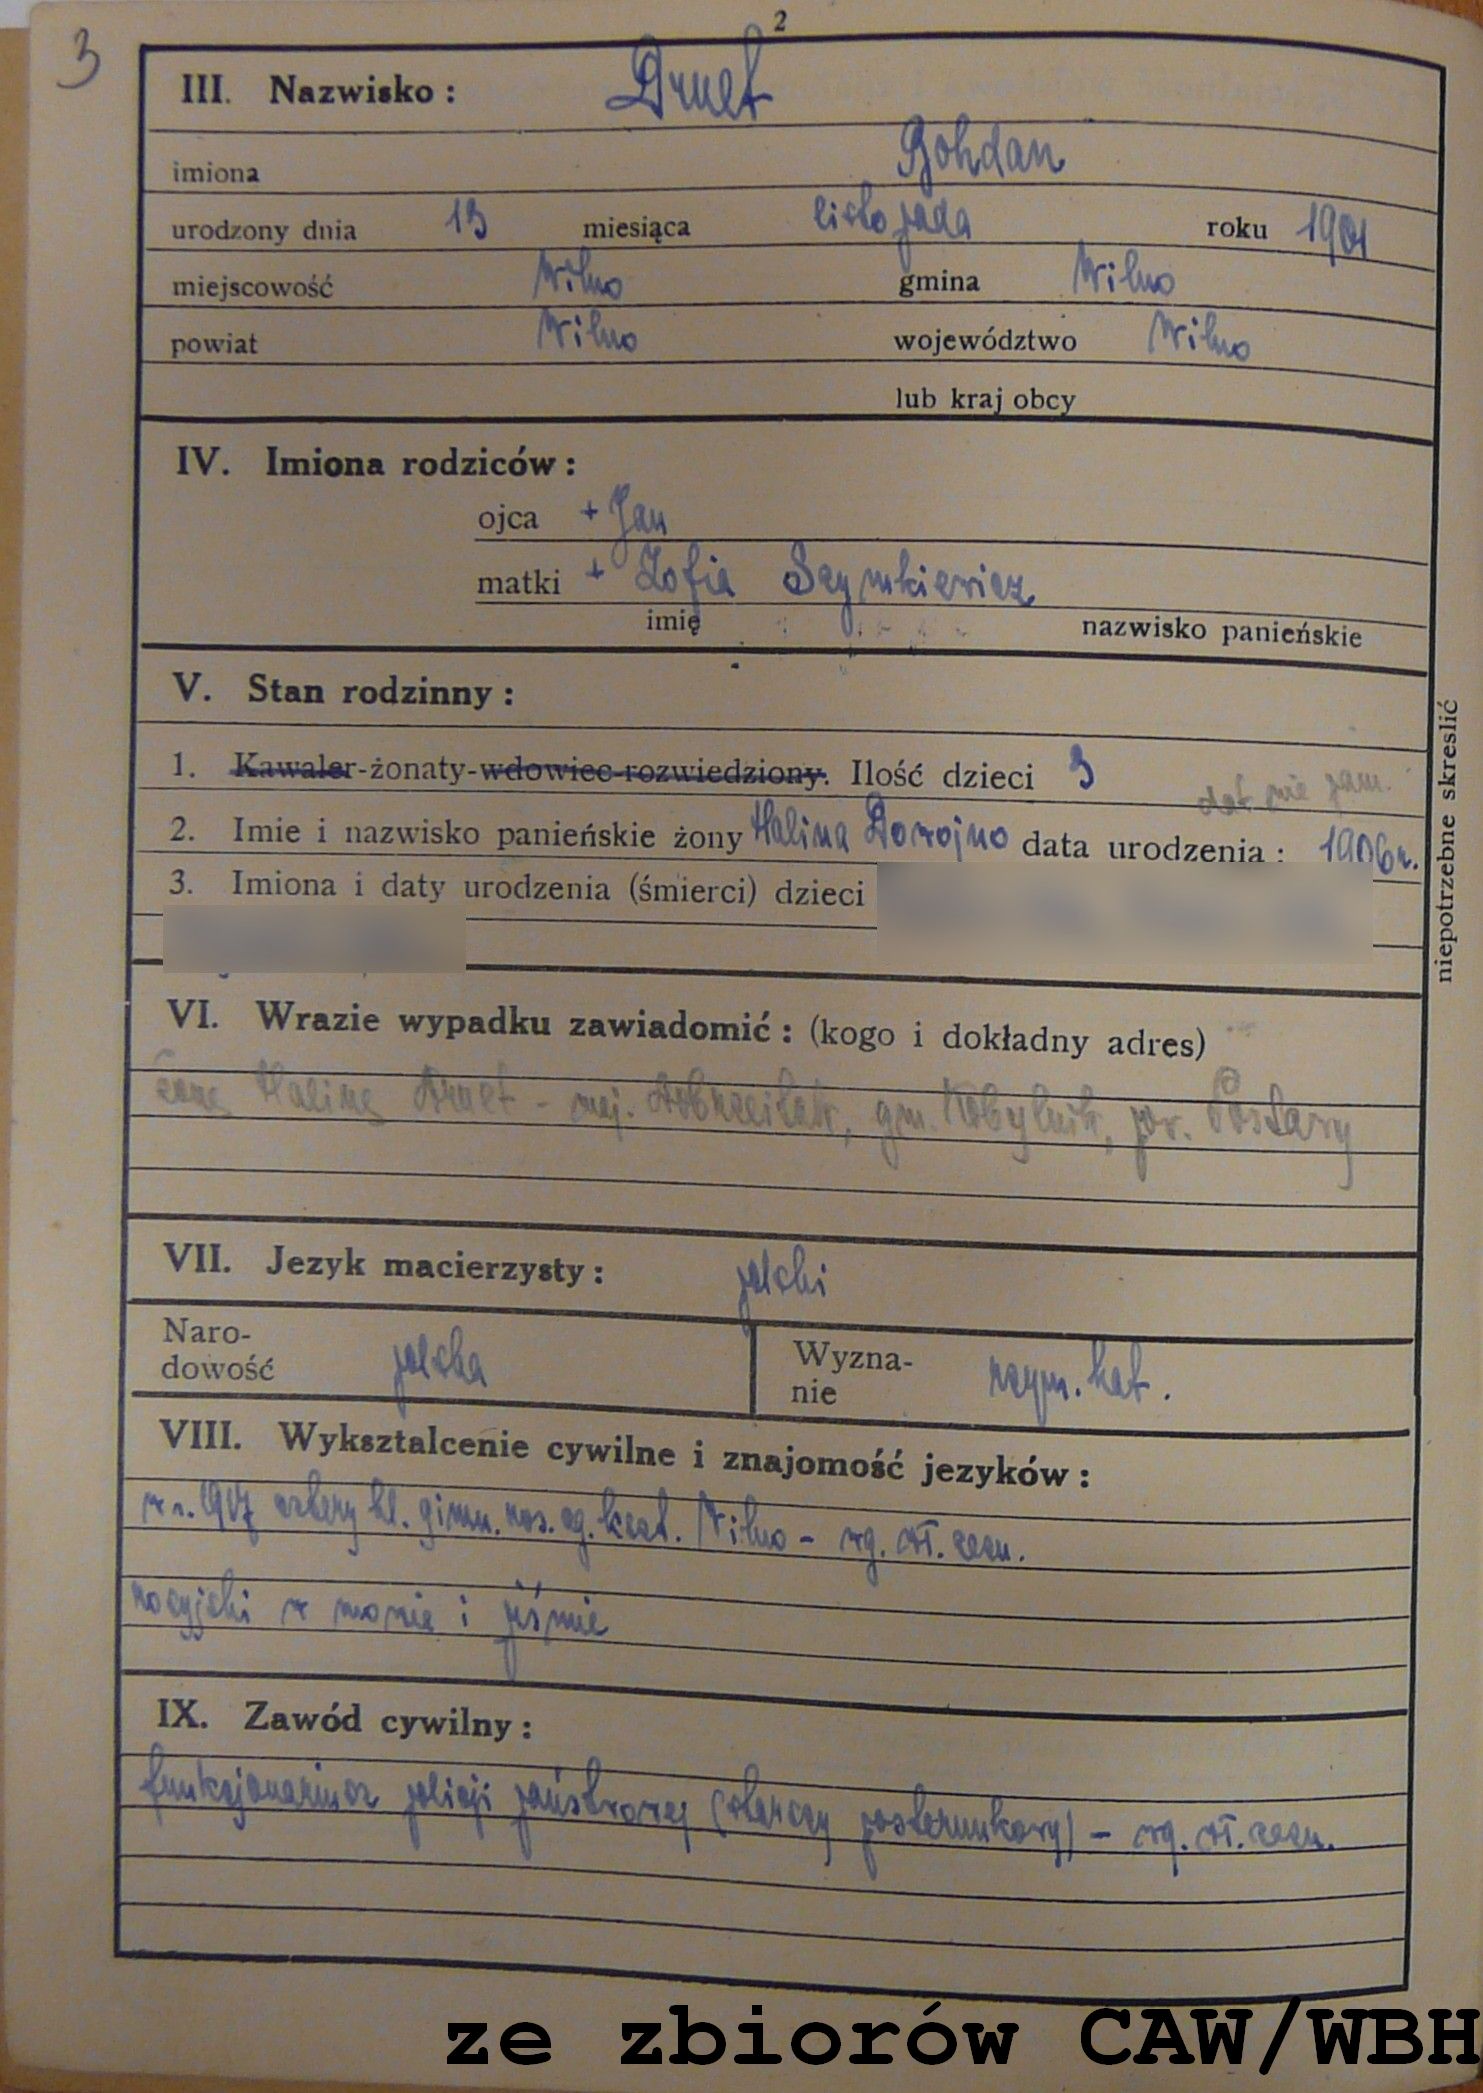 3
2
III. Nazwisko : Druet
imiona Bohdan
urodzony dnia 13 miesiąca listopada roku 1901
miejscowość Wilno gmina Wilno
powiat Wilno województwo Wilno
lub kraj obcy
IV. Imiona rodziców :
ojca + Jan
matki + Zofia Szymkiewicz
imię nazwisko panieńskie
V. Stan rodzinny :
1. Kawaler-żonaty-wdowiec-rozwiedziony. Ilość dzieci 3
dat nie pam.
2. Imie i nazwisko panieńskie żony Halina Dowojno data urodzenia : 1906r.
3. Imiona i daty urodzenia (śmierci) dzieci
niepotrzebne skreslić
VI. Wrazie wypadku zawiadomić : (kogo i dokładny adres)
Halina Druet - maj. gm. Kobylnik, pow. Postawy
VII. Jezyk macierzysty : polski
Naro-
dowość polska
Wyzna-
nie rzym. kat.
VIII. Wyksztalcenie cywilne i znajomość jezyków :
w r. 1917 cztery kl. gimn. ros. Wilno - wg. wł. zezn.
rosyjski w mowie i piśmie
IX. Zawód cywilny :
funkcjonariusz policji państwowej (starszy posterunkowy) - wg. wł. zezn.
ze zbiorów CAW/WBH